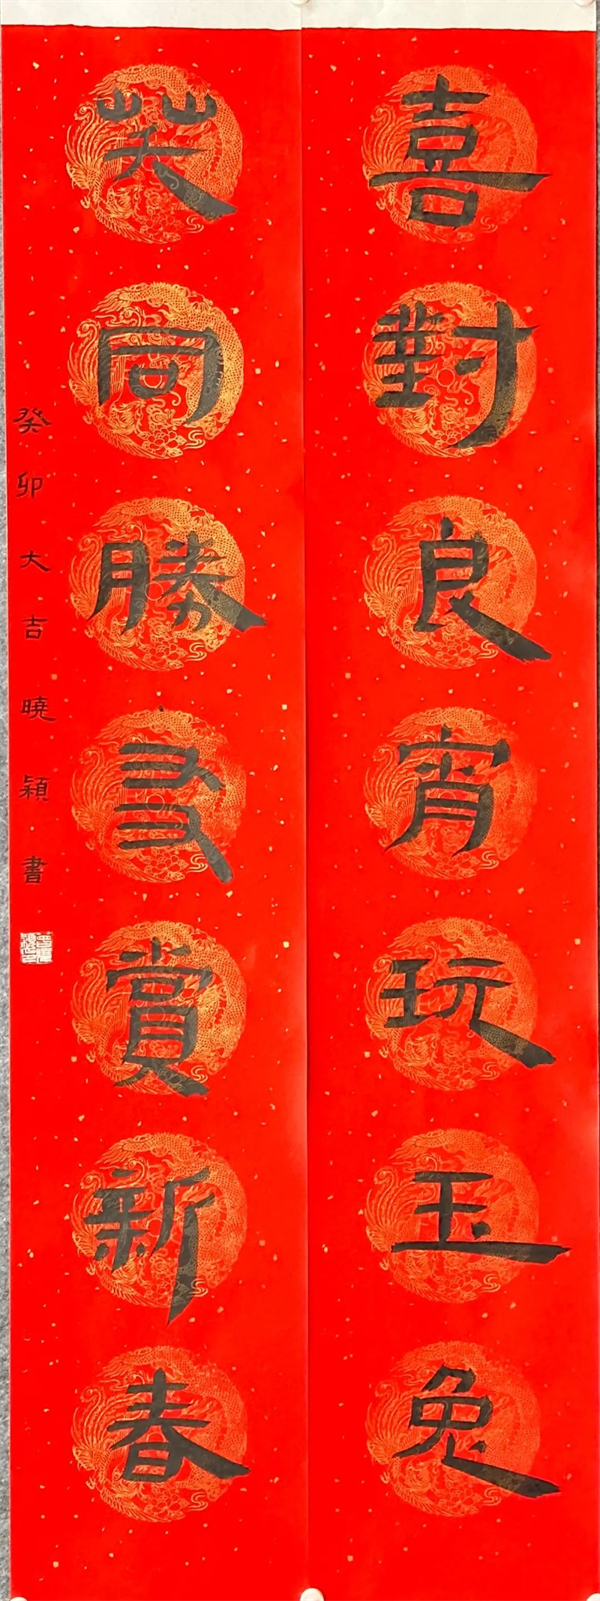 喜對良宵玩玉兔
笑同勝友賞新春
癸卯大吉曉穎書